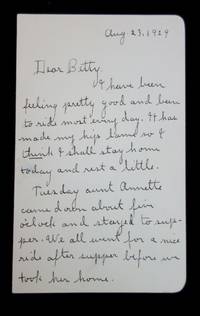 Aug. 23, 1929
Dear Betty,
I have been
feeling pretty good and been
to ride most every day. It has
made my hips lame so I
think I shall stay home
today and rest a little.
Tuesday aunt Annette
came down about five
o'clock and stayed to sup-
per. We all went for a nice
ride after supper before we
took her home.